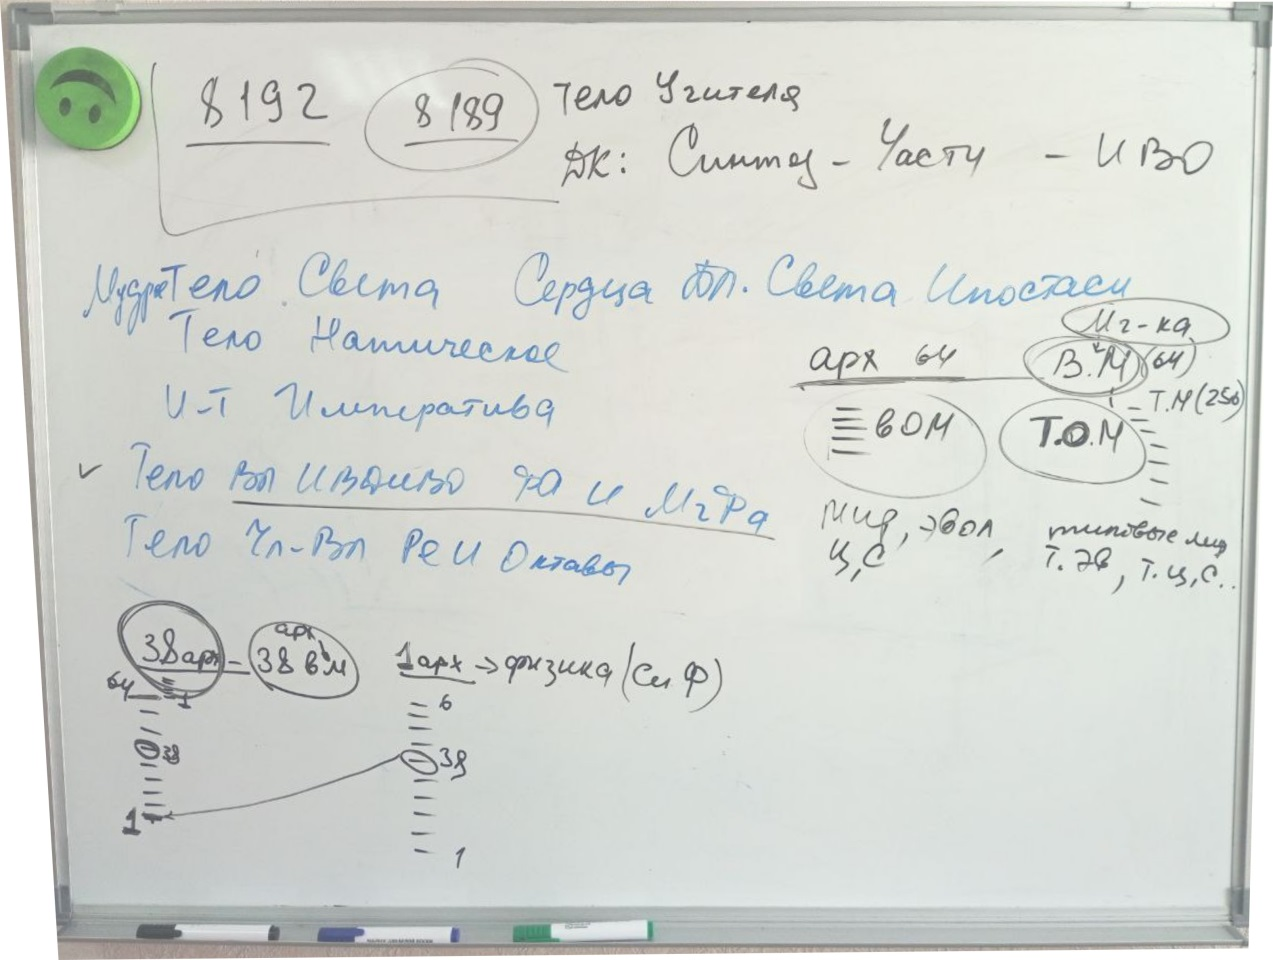 8192 8189 Тело Учителя
ДК: Синтез - Части - ИВО
Тело Света Сердца Вл. Света Ипостаси
Тело Натическое
И-Т Императива
✓ Тело Вл ИВДИВО ФА и МгРа
Тело Чл-Вл Ре и Октавы
Мг-ка
арх 64 В.М (64)
Т.М (256)
ВОМ Т.О.М
Мир, эвол, Ц,С
типовые мир
Т.Эв, Т.Ц,С..
38 арх - 38 ВМ
арх
64 1
38
1
1 арх → физика (си Ф)
6
38
1